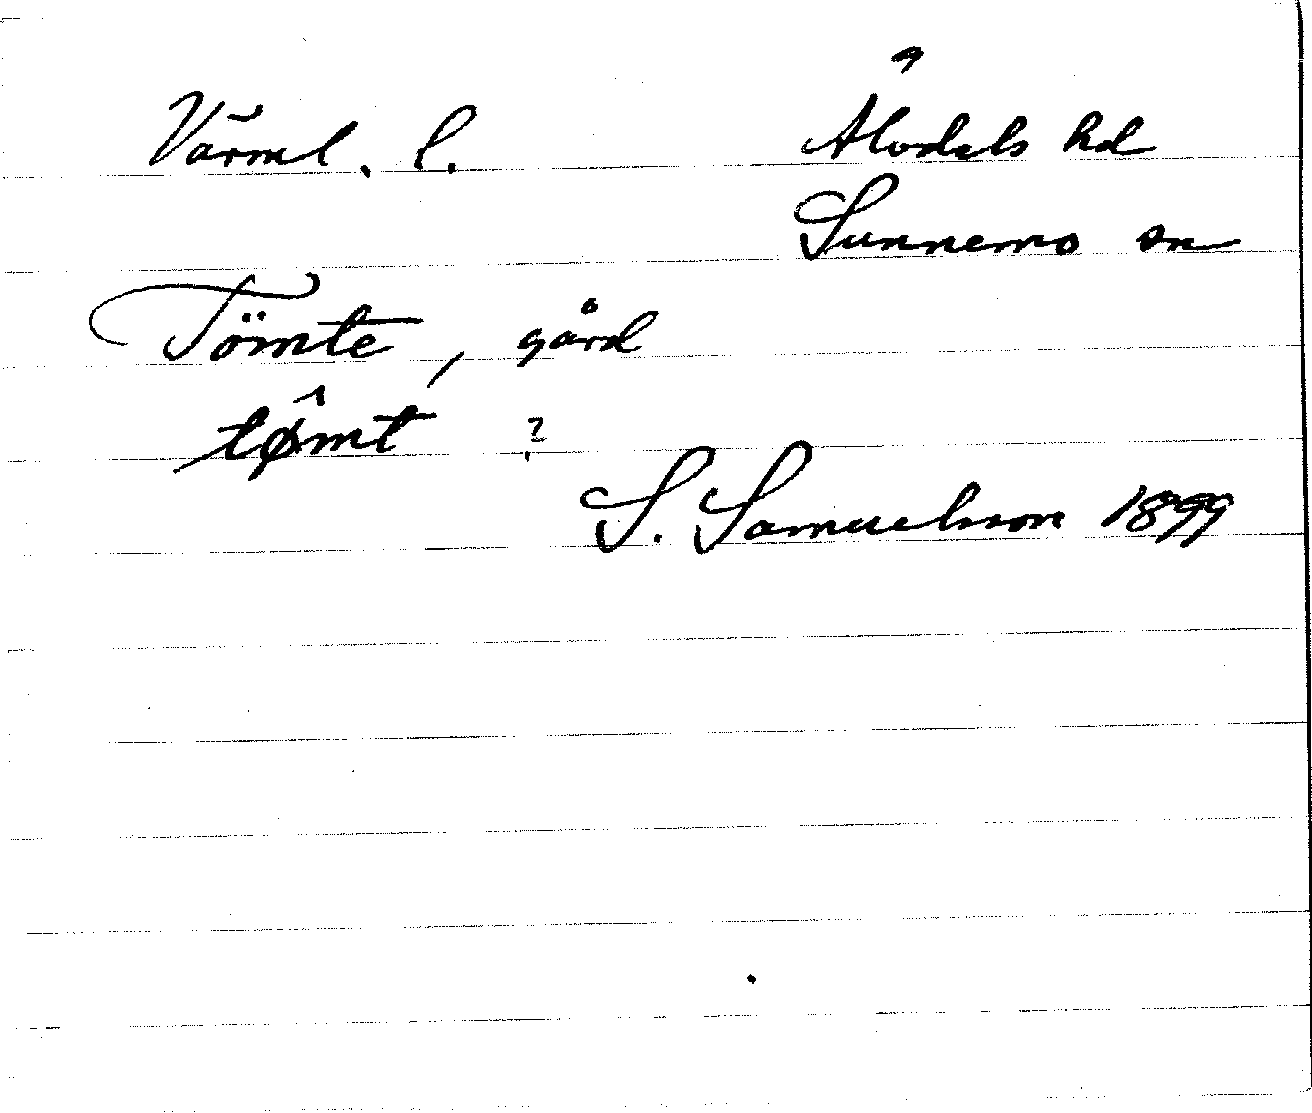 Värml. l. Älvdals hd
Sunnemo sn
Tömte, gård
tø̂mt ?
S. Samuelsson 1899